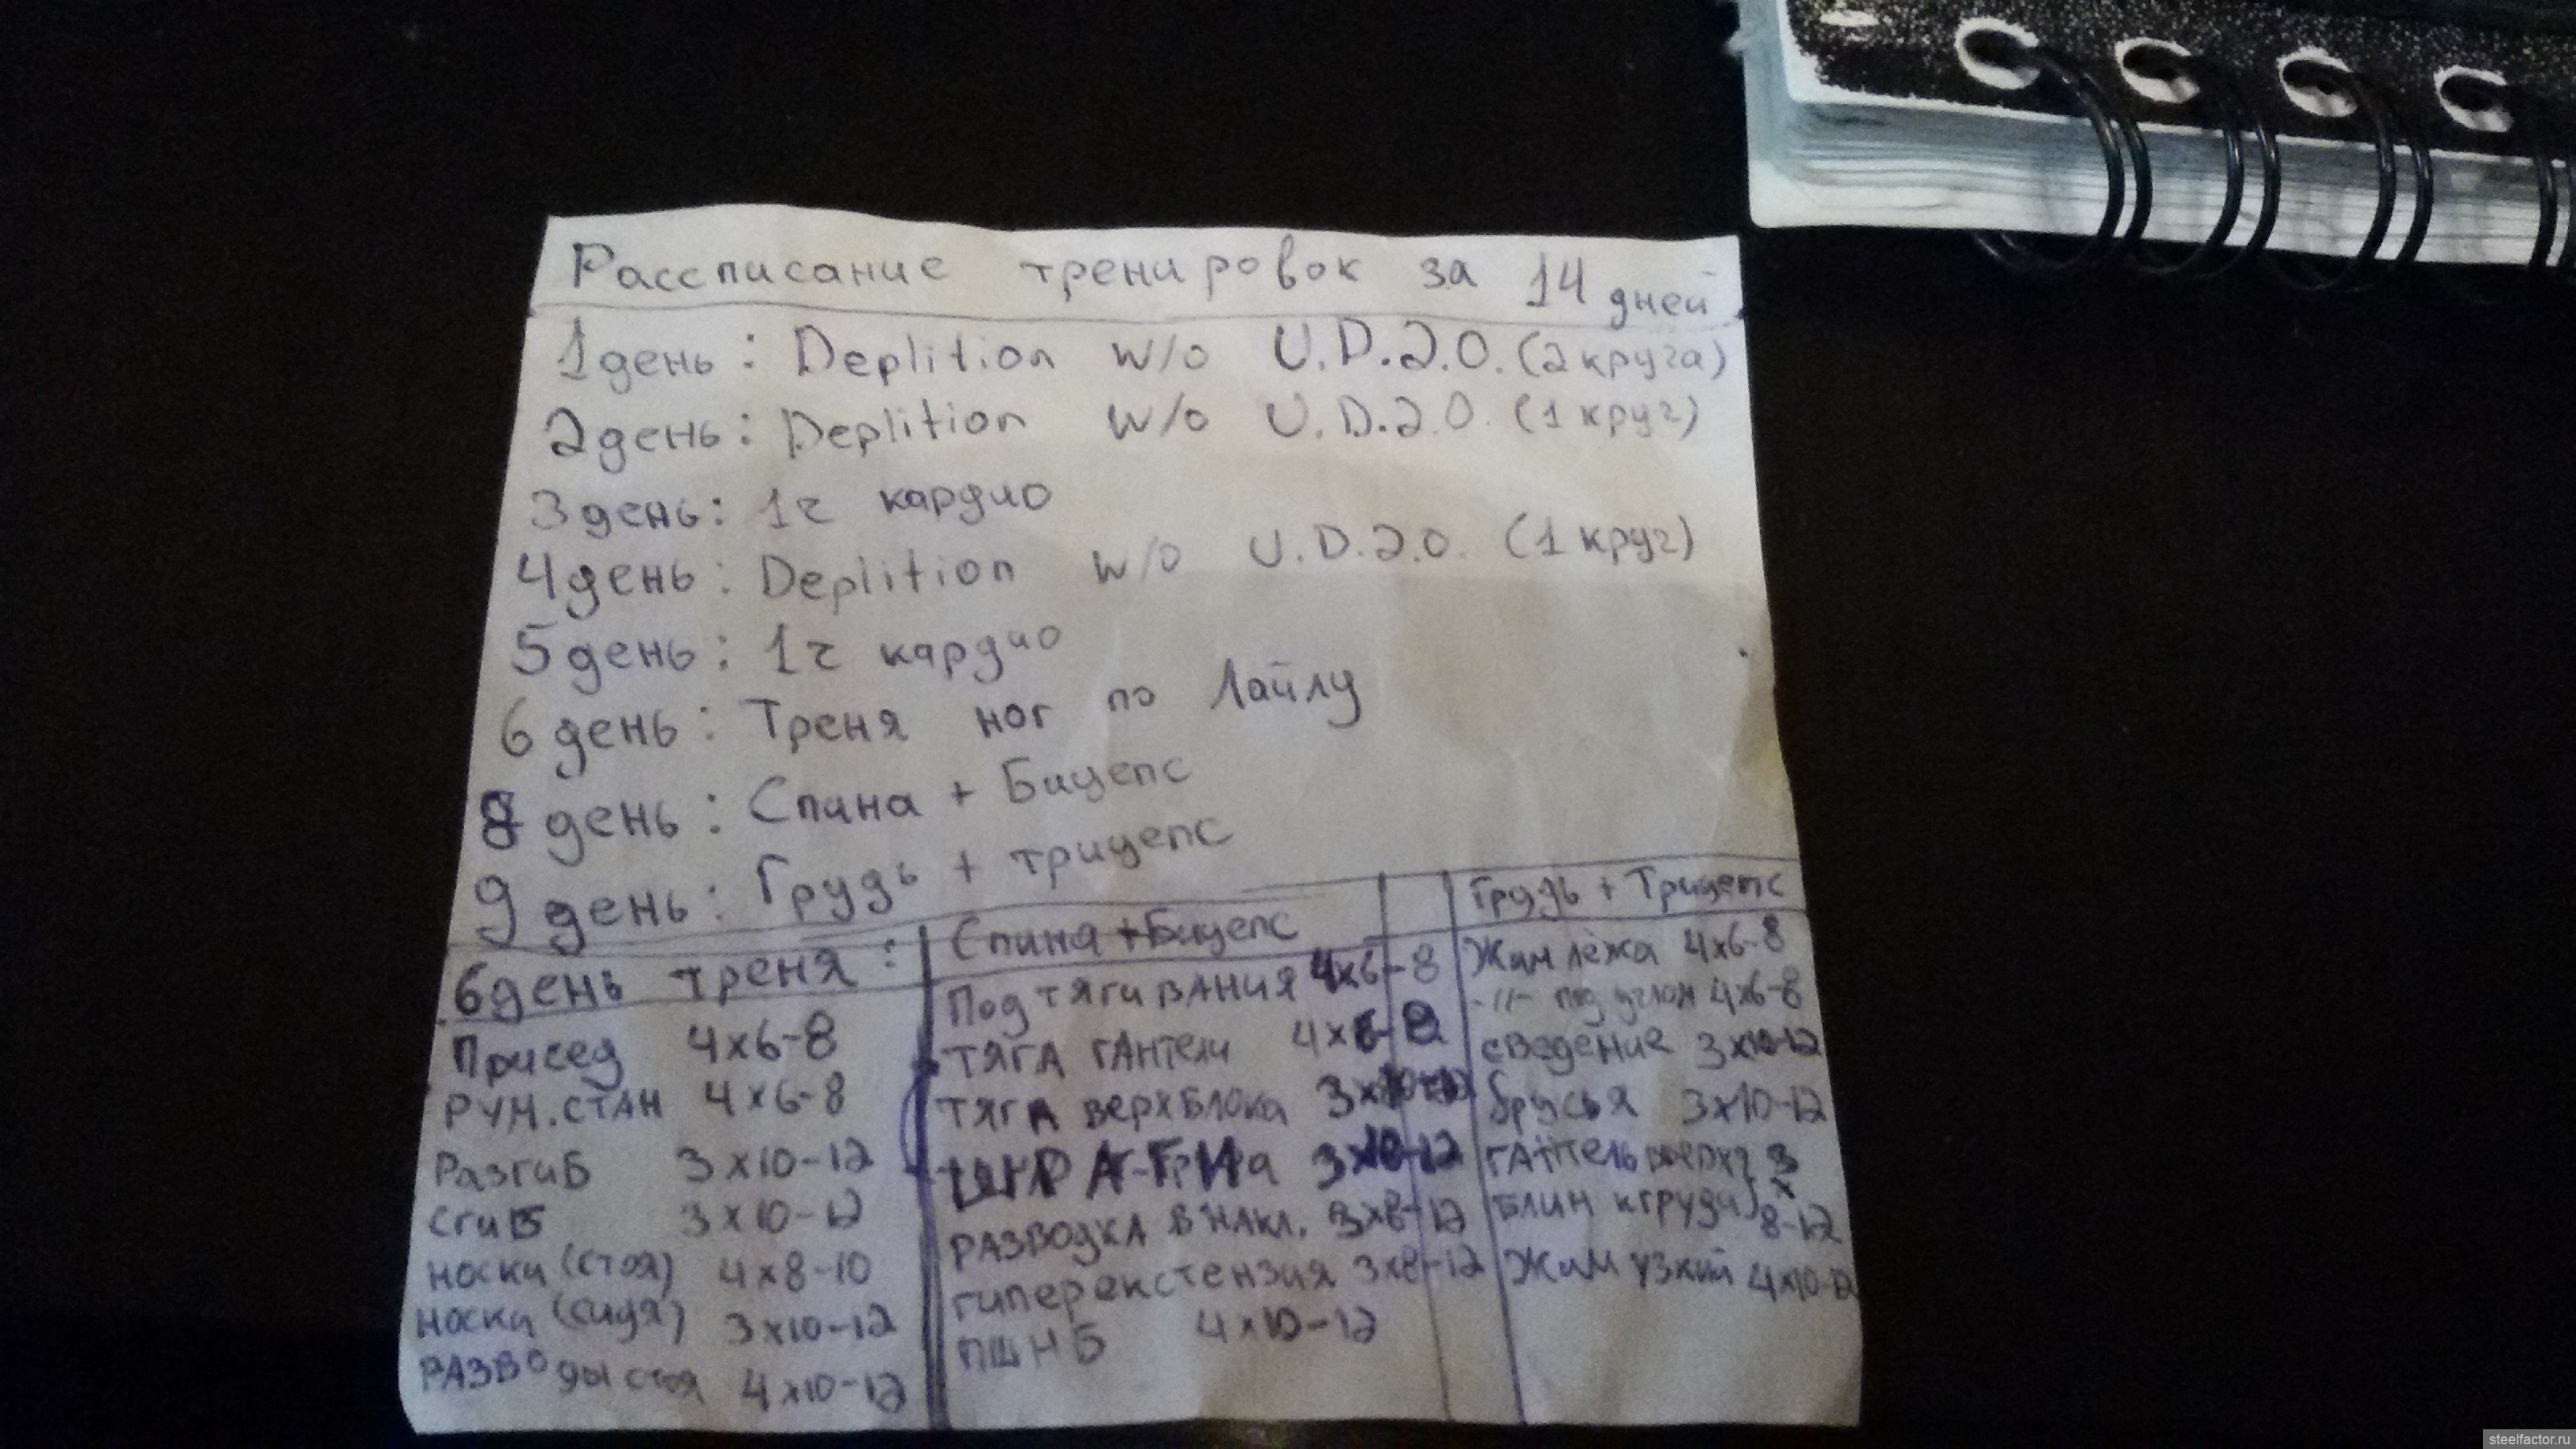 Рассписание тренировок за 14 дней
1 день: Deplition w/o U.D.2.0. (2 круга)
2 день: Deplition w/o U.D.2.0. (1 круг)
3 день: 1ч кардио
4 день: Deplition w/o U.D.2.0. (1 круг)
5 день: 1ч кардио
6 день: Треня ног по Лайлу
8 день: Спина + Бицепс
9 день: Грудь + трицепс
6 день треня:
Присед 4х6-8
РУМ.СТАН 4х6-8
Разгиб 3х10-12
Сгиб 3х10-12
носки (стоя) 4х8-10
носки (сидя) 3х10-12
РАЗВОды стоя 4х10-12
Спина+Бицепс
ПодТЯГиВАНИЯ 4х6-8
ТЯГА ГАнтели 4х6-8
ТЯГА ВерхБлока 3х10-12
3х10-12
РАЗВОДКА В НАКЛ. 3х8-12
гиперекстензия 3х8-12
ПШНБ 4х10-12
Грудь + Трицепс
Жим лёжа 4х6-8
-//- под углом 4х6-8
сведение 3х10-12
брусья 3х10-12
ГАнтель вверх 3
Блин к груди х
8-12
Жим узкий 4х10-12
steelfactor.ru